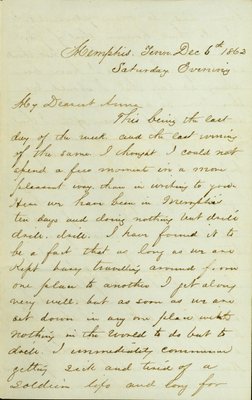 Memphis. Tenn. Dec 6th 1862
Saturday Evening
My Dearest Anna
This being the last
day of the week, and the last evening
of the same. I thought I could not
spend a few moments in a more
pleasant way, than in writing to you.
Here we have been in Memphis
ten days and doing nothing but drill
drill. drill. I have found it to
be a fact that as long as we are
kept busy traveling around from
one place to another I get along
very well. but as soon as we are
set down in any one place with
nothing in the world to do but to
drill. I immediately commence
getting sick and tired of a
soldiers life and long for